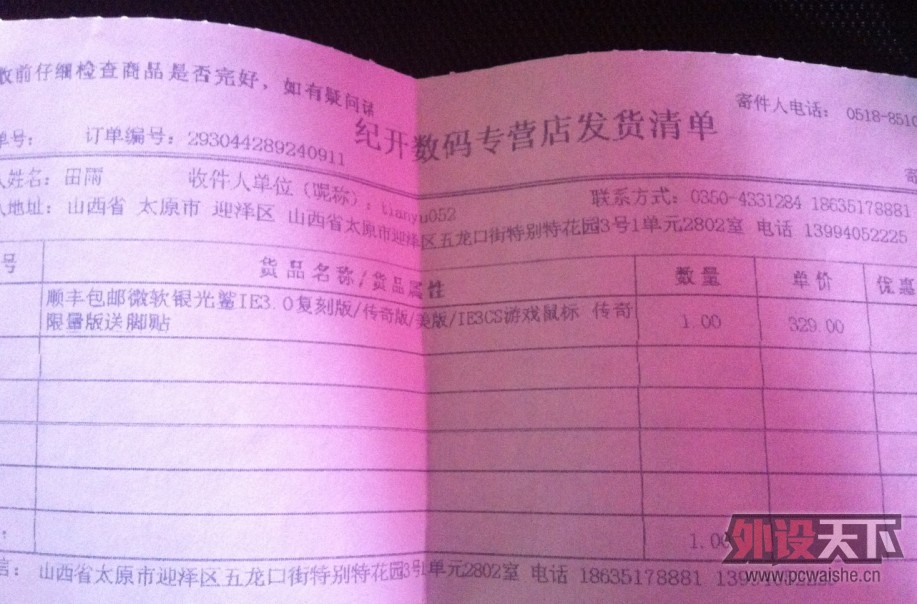 前仔细检查商品是否完好，如有疑问请
寄件人电话： 0518-8510
纪开数码专营店发货清单
单号： 订单编号：293044289240911
寄
人姓名：田雨 收件人单位（昵称）：tianyu052 联系方式：0350-4331284 18635178881
人地址：山西省 太原市 迎泽区 山西省太原市迎泽区五龙口街特别特花园3号1单元2802室 电话 13994052225
号 货品名称/货品属性 数量 单价 优惠
顺丰包邮微软银光鲨IE3.0复刻版/传奇版/美版/IE3CS游戏鼠标 传奇 1.00 329.00
限量版送脚贴
1.00
言： 山西省太原市迎泽区五龙口街特别特花园3号1单元2802室 电话 18635178881
外设天下
www.pcwaishe.cn